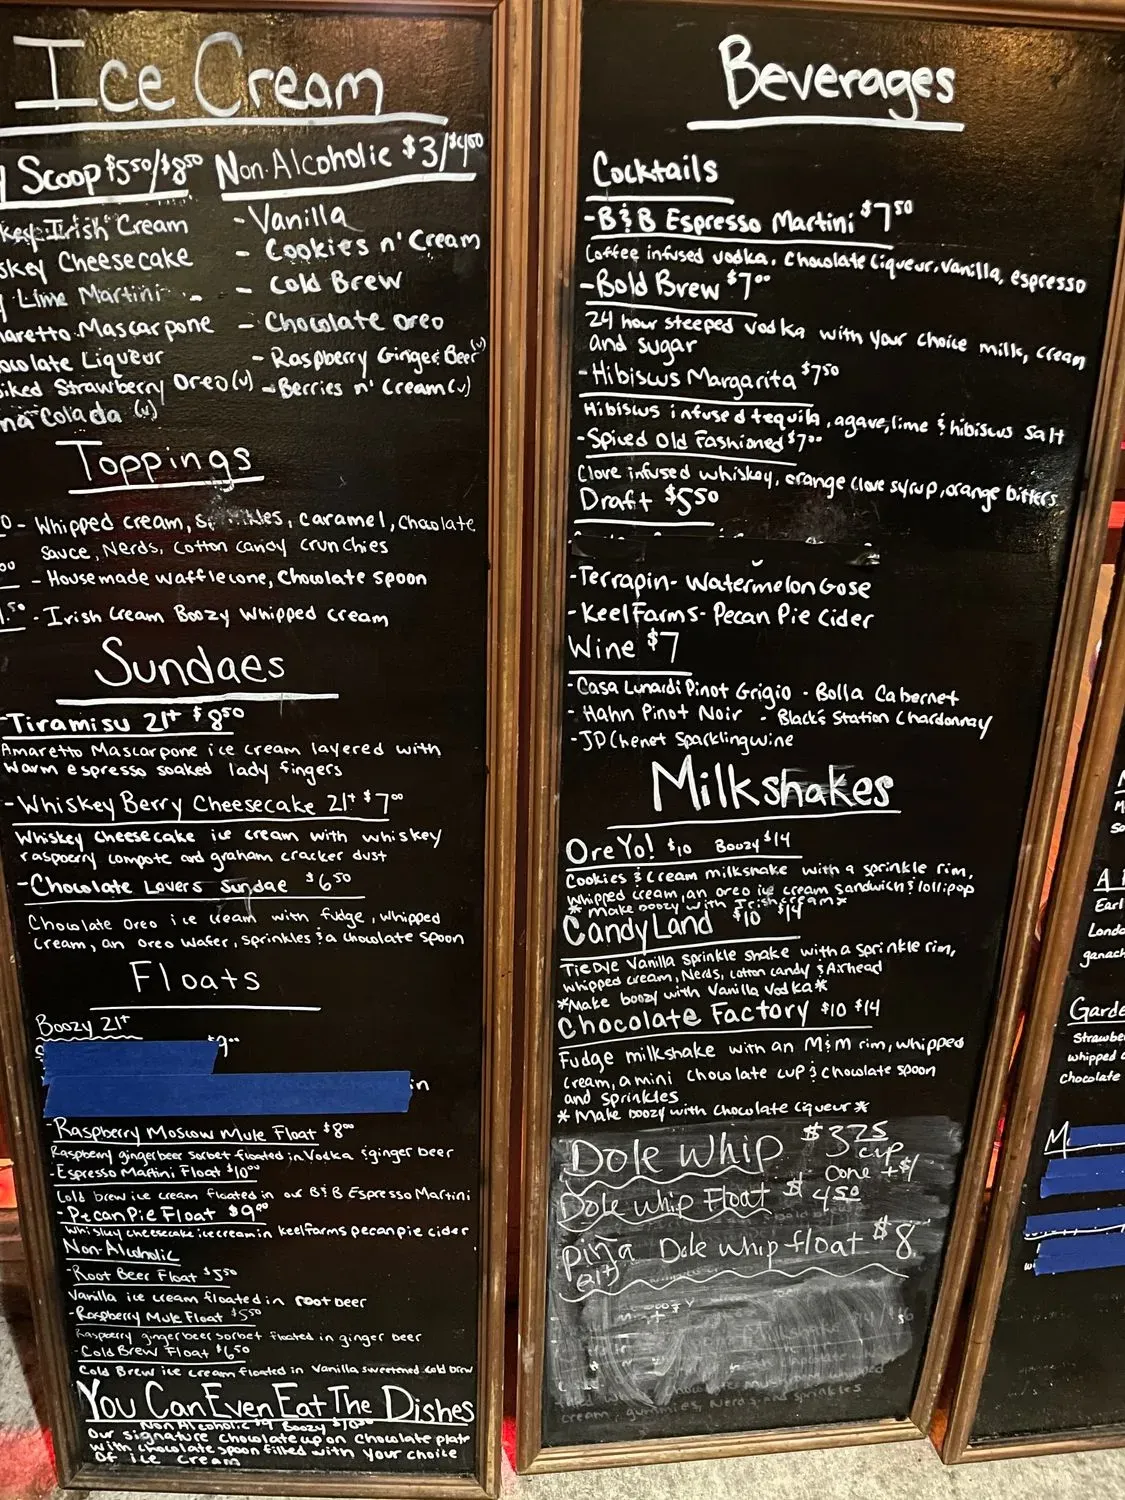 Ice Cream
Scoop $5⁵⁰/$8⁵⁰
Irish Cream
Cheesecake
Lime Martini
Mascarpone
Liqueur
Strawberry Oreo (v)
Colada (v)
Non-Alcoholic $3/$4⁵⁰
- Vanilla
- Cookies n' Cream
- Cold Brew
- Chocolate Oreo
- Raspberry Ginger Beer (v)
- Berries n' Cream (v)
Toppings
- Whipped cream, caramel, Chocolate
sauce, Nerds, Cotton candy crunchies
- House made waffle cone, Chocolate spoon
- Irish Cream Boozy Whipped cream
Sundaes
- Tiramisu 21+ $8⁵⁰
Amaretto Mascarpone ice cream layered with
warm espresso soaked lady fingers
- Whiskey Berry Cheesecake 21+ $7⁰⁰
Whiskey cheesecake ice cream with whiskey
raspberry compote and graham cracker dust
- Chocolate Lovers Sundae $6⁵⁰
Chocolate Oreo ice cream with fudge, whipped
cream, an oreo wafer, sprinkles & a chocolate spoon
Floats
Boozy 21+
$9⁰⁰
in
- Raspberry Moscow Mule Float $8⁰⁰
Raspberry gingerbeer sorbet floated in Vodka & ginger beer
- Espresso Martini Float $10⁰⁰
Cold brew ice cream floated in our B&B Espresso Martini
- Pecan Pie Float $9⁰⁰
Whiskey cheesecake icecream in keelfarms pecan pie cider
Non-Alcoholic
- Root Beer Float $5⁵⁰
Vanilla ice cream floated in root beer
- Raspberry Mule Float $5⁵⁰
Raspberry gingerbeer sorbet floated in ginger beer
- Cold Brew Float $6⁵⁰
Cold Brew ice cream floated in Vanilla sweetened cold brew
You Can Even Eat The Dishes
Non Alcoholic $9 Boozy
Our signature chocolate cup on chocolate plate
with chocolate spoon filled with your choice
of ice cream
Beverages
Cocktails
- B&B Espresso Martini $7⁵⁰
Coffee infused vodka, Chocolate Liqueur, Vanilla, espresso
- Bold Brew $7⁰⁰
24 hour steeped vodka with your choice milk, cream
and sugar
- Hibiscus Margarita $7⁵⁰
Hibiscus infused tequila, agave, lime & hibiscus salt
- Spiced Old Fashioned $7⁰⁰
Clove infused whiskey, orange clove syrup, orange bitters
Draft $5⁵⁰
- Terrapin - Watermelon Gose
- Keel Farms - Pecan Pie Cider
Wine $7
- Casa Lunardi Pinot Grigio - Bolla Cabernet
- Hahn Pinot Noir - Black's Station Chardonnay
- JP Chenet Sparkling wine
Milkshakes
Ore Yo! $10 Boozy $14
Cookies & Cream milkshake with a sprinkle rim,
whipped cream, an oreo ice cream sandwich & lollipop
* Make boozy with Irish cream *
Candy Land $10 $14
Tie Dye Vanilla sprinkle shake with a sprinkle rim,
whipped cream, Nerds, cotton candy & Airhead
* Make boozy with Vanilla Vodka *
Chocolate Factory $10 $14
Fudge milkshake with an M&M rim, whipped
cream, a mini chocolate cup & chocolate spoon
and sprinkles
* Make boozy with chocolate liqueur *
Dole Whip $3²⁵ cup
cone + $1
Dole Whip Float $4⁵⁰
piña Dole whip float $8
(alt)
cream, gummies, Nerds and sprinkles
Earl
Londo
ganach
Garde
Strawbe
whipped c
chocolate